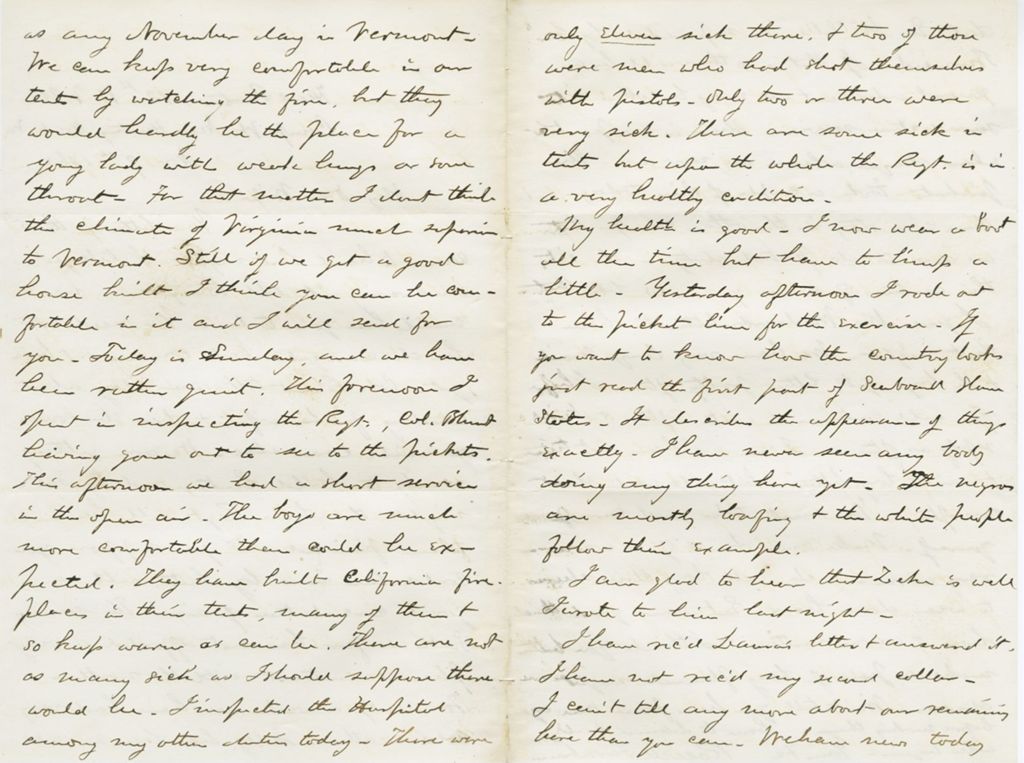 as any November day in Vermont -
We can keep very comfortable in our
tents by watching the fire, but they
would hardly be the place for a
young lady with weak lungs or sore
throat - For that matter I dont think
the climate of Virginia much superior
to Vermont. Still if we get a good
house built I think you can be com-
fortable in it and I will send for
you - Today is Sunday, and we have
been rather quiet. This forenoon I
spent in inspecting the Regt, Col. Blunt
having gone out to see to the pickets.
This afternoon we had a short service
in the open air - The boys are much
more comfortable than could be ex-
pected. They have built California fire-
places in their tents, many of them &
so keep warm as can be. There are not
as many sick as I should suppose there
would be - I inspected the Hospital
among my other duties today - There were
only eleven sick there, & two of those
were men who had shot themselves
with pistols - Only two or three were
very sick. There are some sick in
tents but upon the whole the Regt. is in
a very healthy condition -
My health is good - I now wear a boot
all the time but have to limp a
little - Yesterday afternoon I rode out
to the picket line for the exercise - If
you want to know how the country looks
just read the first part of Seaboard Slave
States - It describes the appearance of things
exactly - I have never seen any body
doing any thing here yet - The negros
are mostly loafing & the white people
follow their example.
I am glad to hear that Zeke is well
I wrote to him last night -
I have rec'd Laura's letter & answered it.
I have not rec'd my second collar -
I can't tell any more about our remaining
here than you can - We have news today